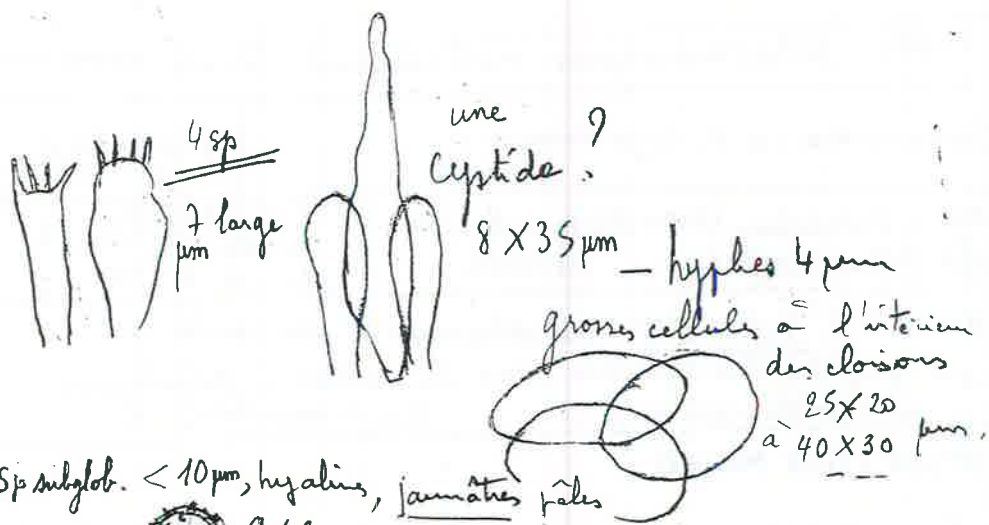 4 sp
7 large
µm
une
cystide ?
8 X 35 µm
— hyphes 4 µm
grosses cellules à l'intérieur
des cloisons
25 X 20
à 40 X 30 µm.
Sp subglob. < 10 µm, hyalines, jaunâtres pâles